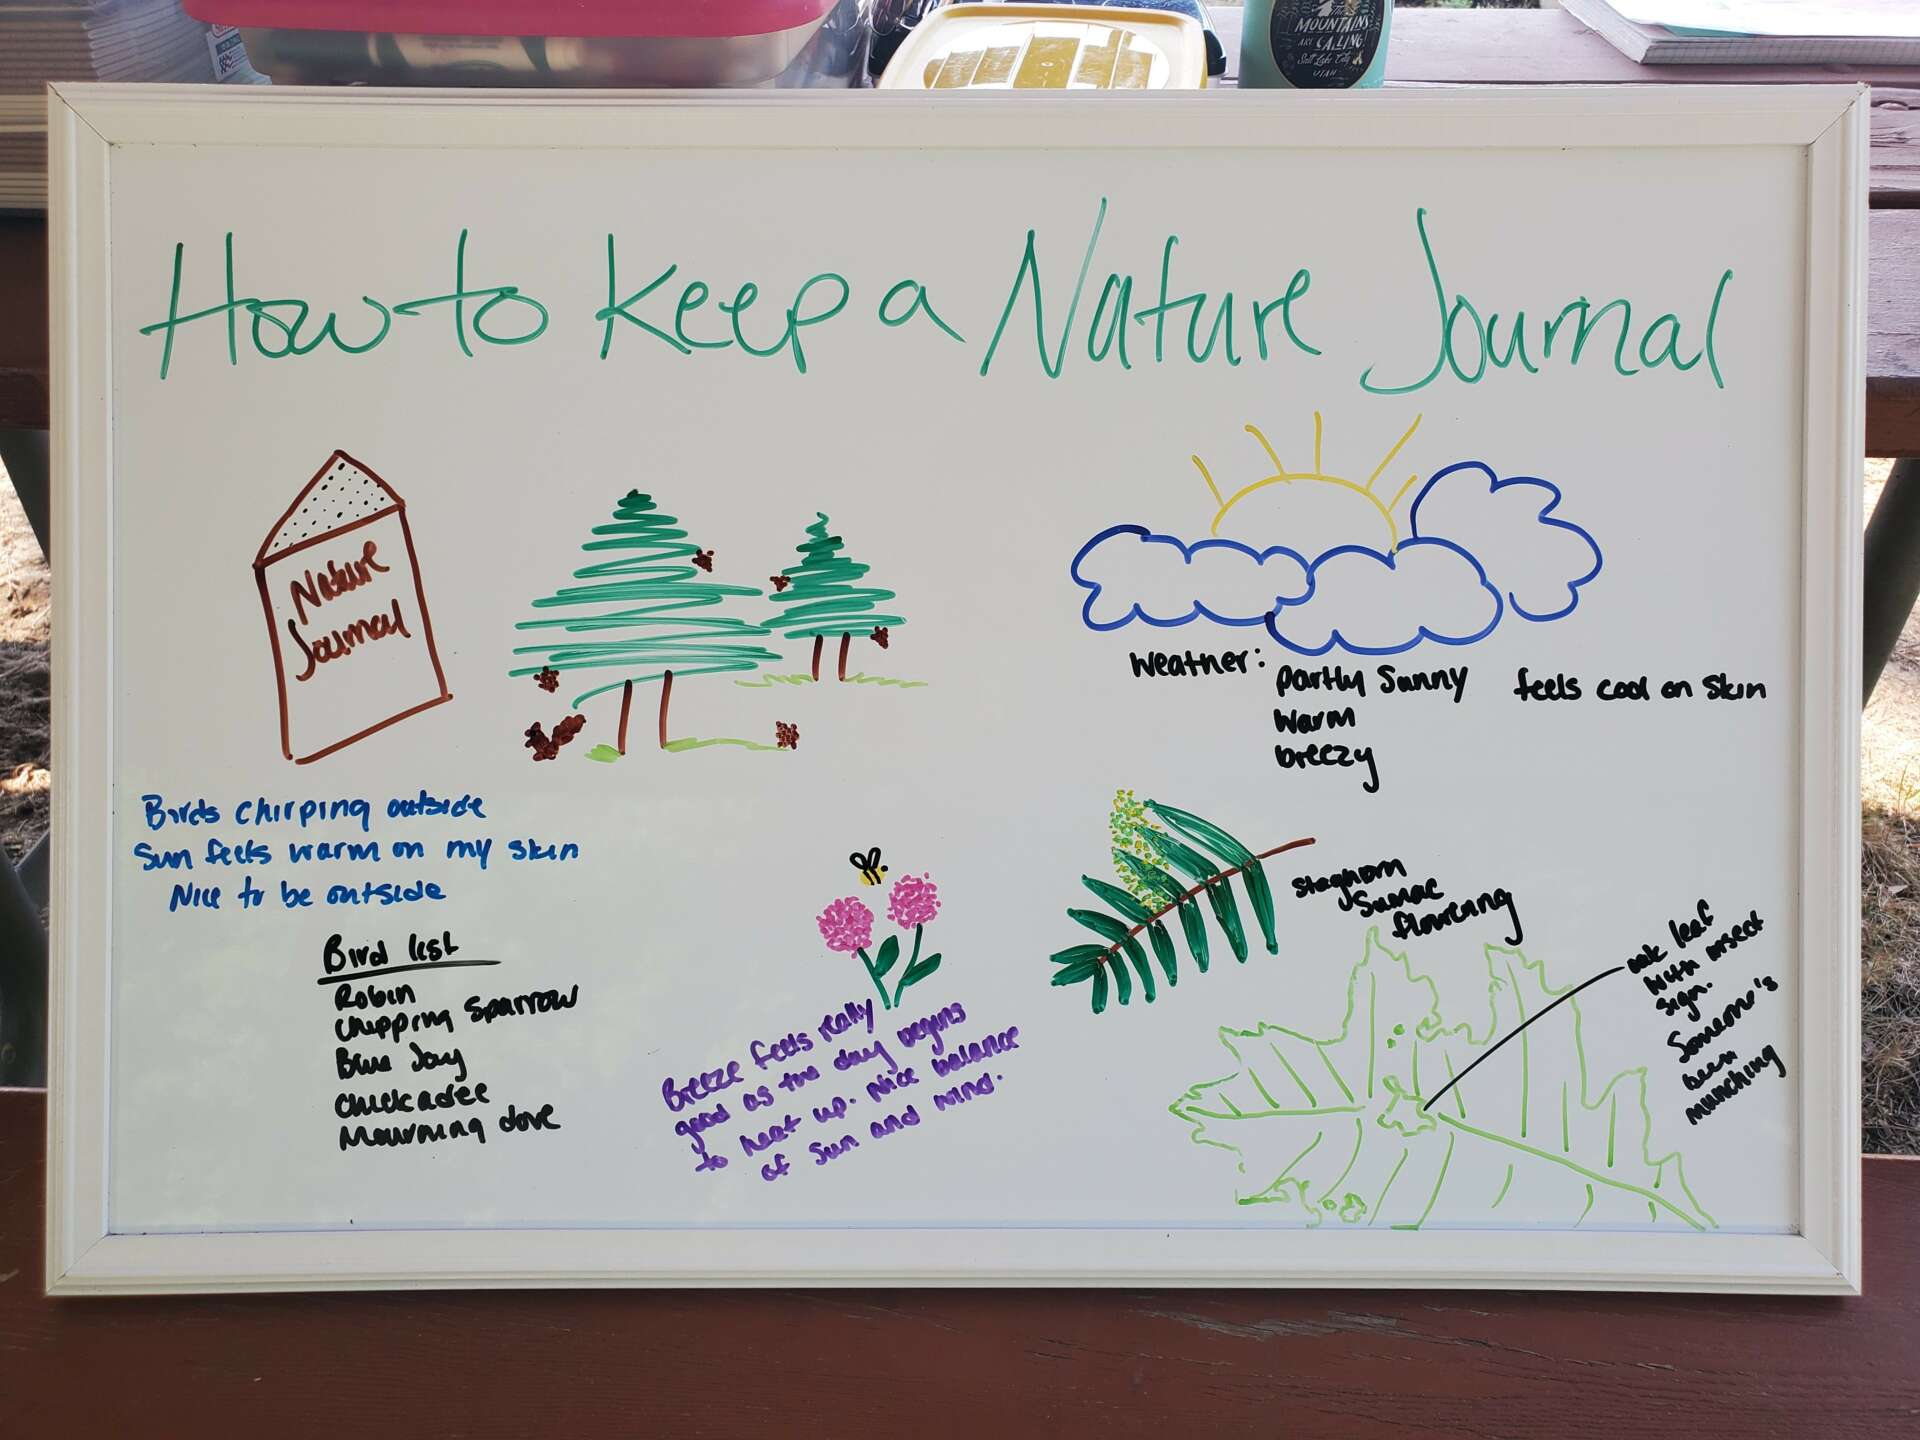 THE
MOUNTAINS
ARE CALLING
Salt Lake City
UTAH
How to Keep a Nature Journal
Nature
Journal
Weather: partly sunny feels cool on skin
warm
breezy
Birds chirping outside
Sun feels warm on my skin
Nice to be outside
Bird list
Robin
Chipping Sparrow
Blue Jay
Chickadee
Mourning dove
Breeze feels really
good as the day begins
to heat up. Nice balance
of sun and wind.
Staghorn
Sumac
flowering
oak leaf
with insect
sign.
Someone's
been
munching